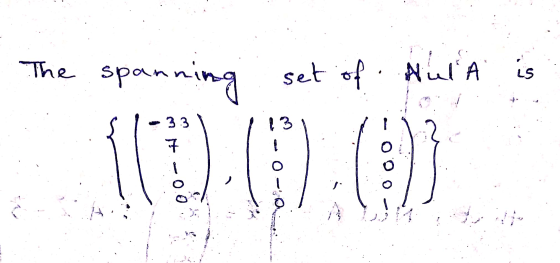 The spanning set of Nul A is
{ ( -33 7 1 0 0 ) , ( 13 1 0 1 0 ) , ( 1 0 0 0 1 ) }